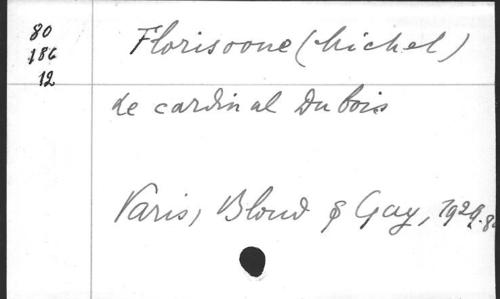 80
186
12
Florisoone (Michel)
Le cardinal Dubois
Paris, Bloud & Gay, 1929. 8º